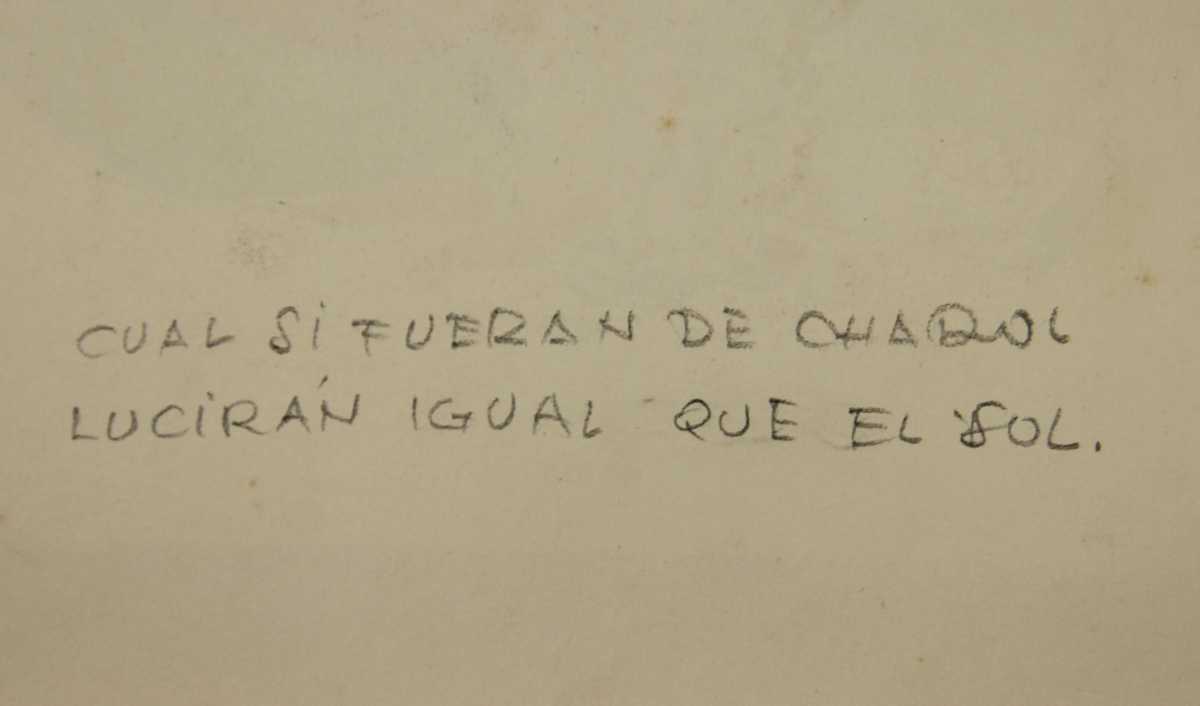 CUAL Si FUERAN DE CHAROL
LUCiRÁN IGUAL QUE EL SOL.